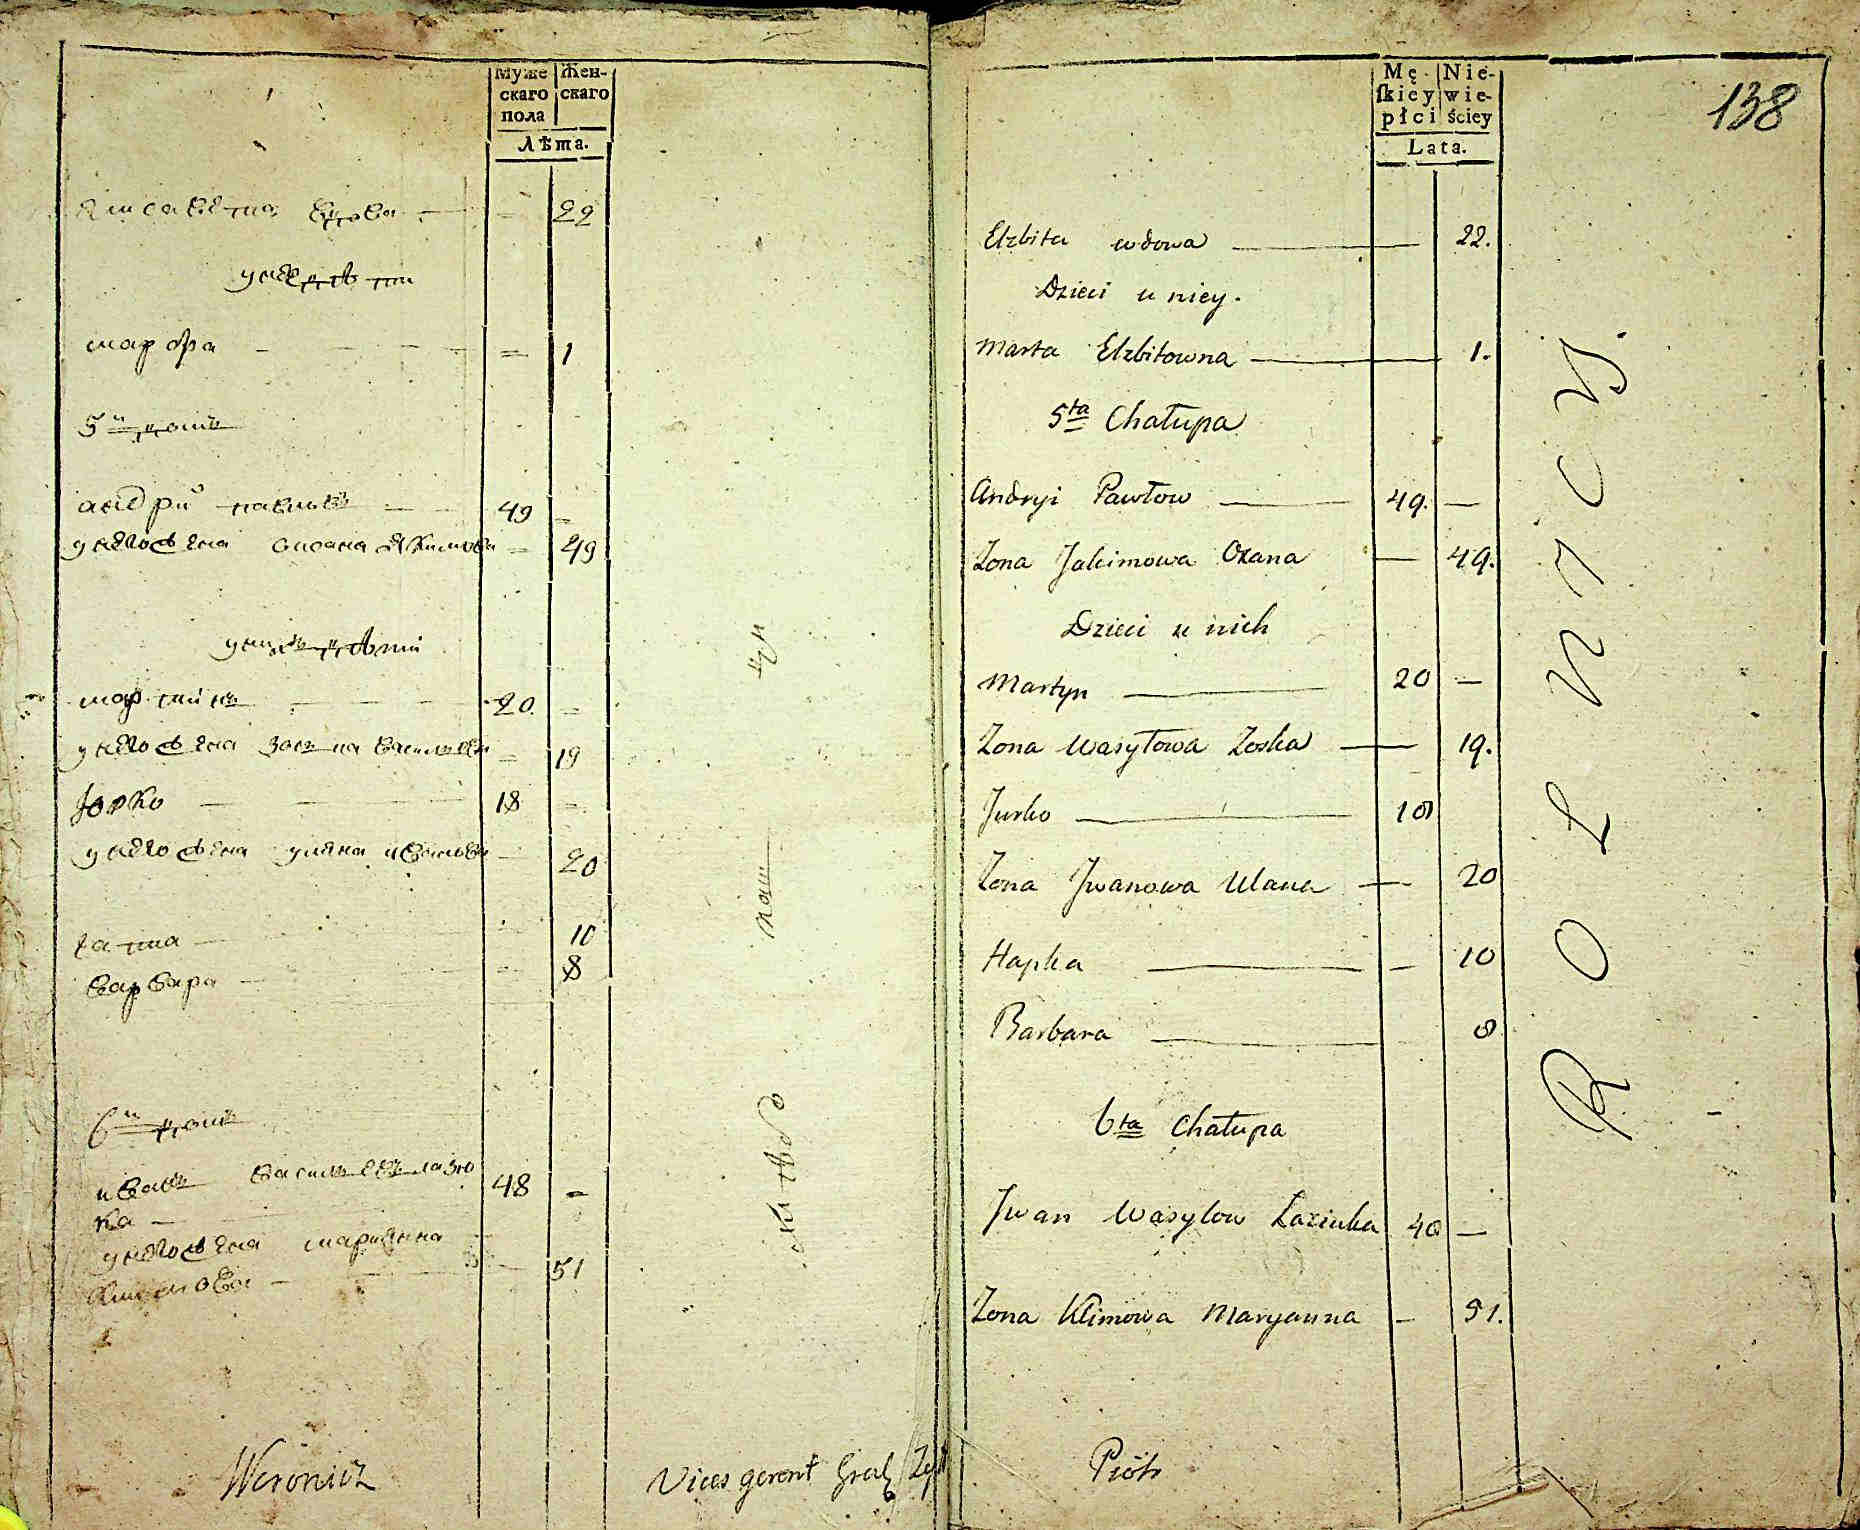 Муже
скаго
пола
Жен-
скаго
Лѣта.
Елисавета вдова — — 22
у неё дѣти
марфа — — 1
5й домъ
андрій павловъ — 49 —
у него жена оксана Якимова — 49
у нихъ дѣти
мартинъ — 20 —
у него жена зоська василева — 19
Юрко — 18 —
у него жена уляна иванова — 20
гапка — 10
варвара — 8
6й домъ
иванъ василевъ лазю 48 —
ка —
у него жена марианна
климова — — 51
Weronicz
Vices gerent
138
Mę-
skiey
płci
Nie-
wie-
ściey
Lata.
Elzbita wdowa — 22.
Dzieci u niey.
Marta Elzbitowna — 1.
5ta Chałupa
Andryi Pawłow — 49. —
Zona Jakimowa Oxana — 49.
Dzieci u nich
Martyn — 20 —
Zona Wasylowa Zoska — 19.
Jurko — 18
Zona Jwanowa Ulana — 20
Hapka — 10
Barbara — 8
6ta Chałupa
Jwan Wasylow Laziuka 48 —
Zona Klimowa Maryanna — 51.
Piotr
ROLNICY.